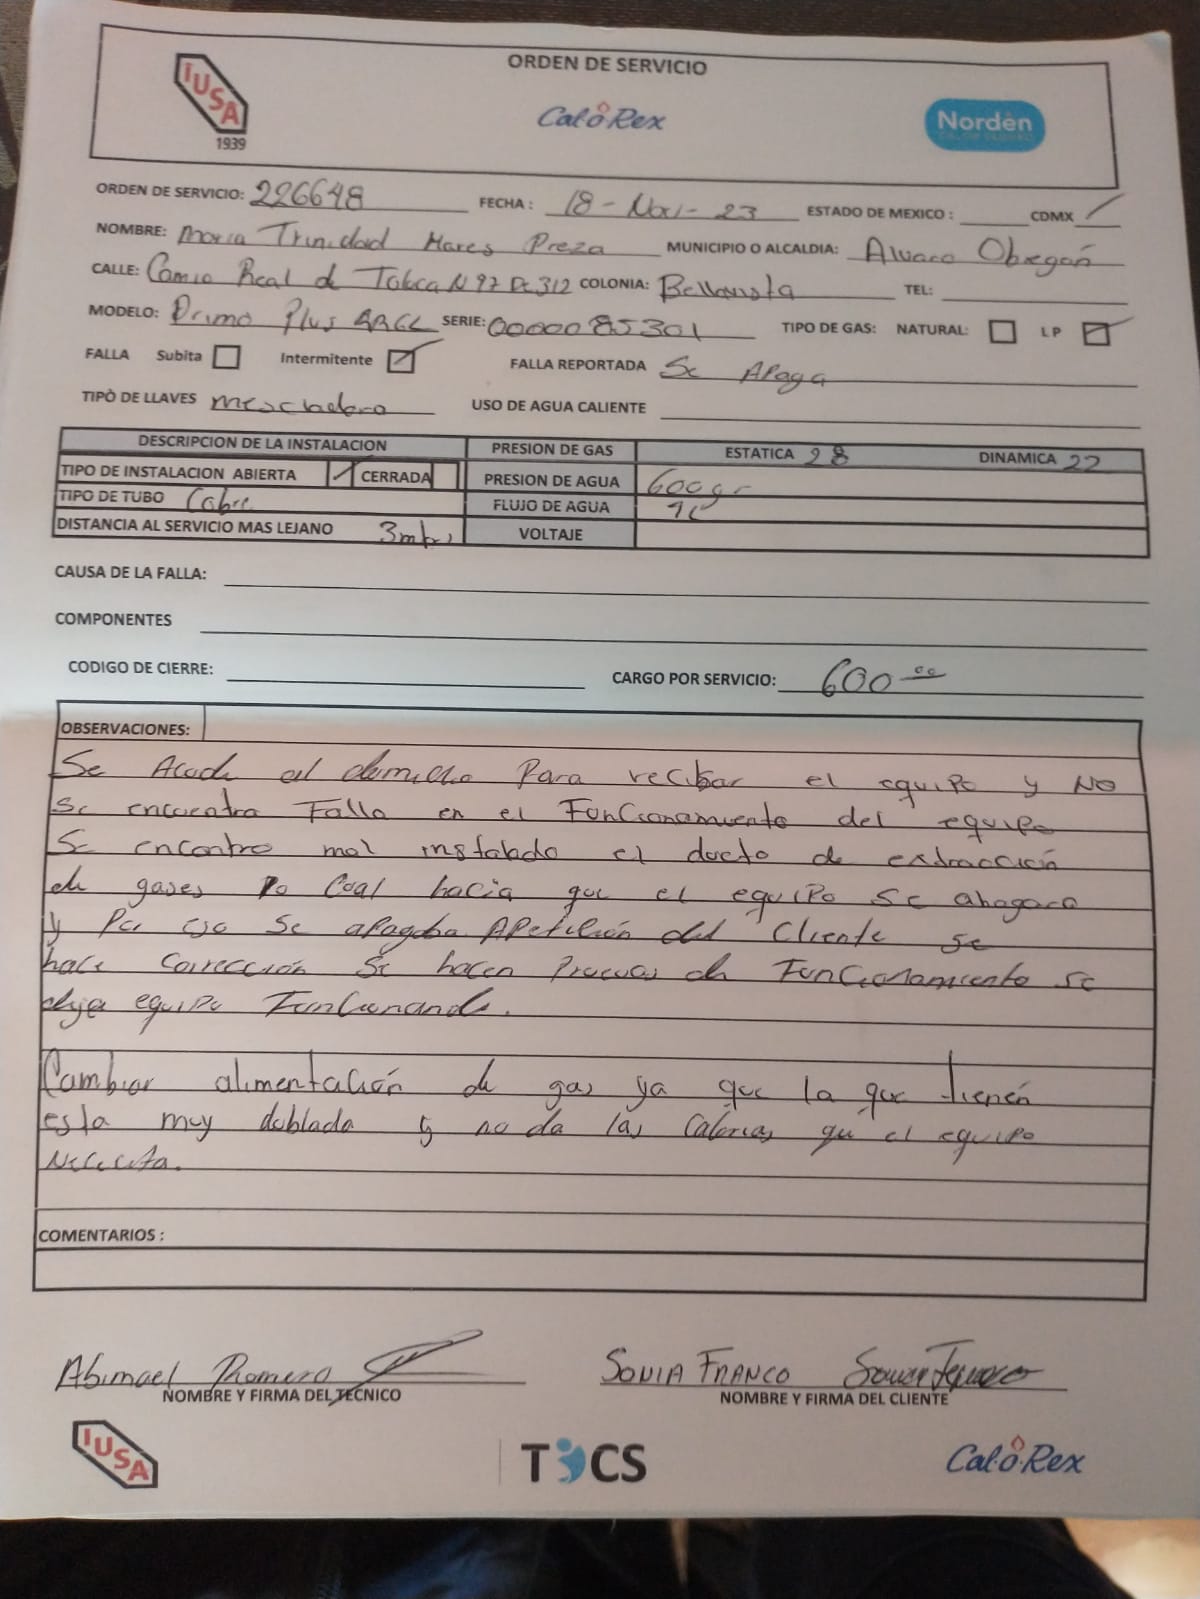 ORDEN DE SERVICIO
IUSA
1939
Cal-o-Rex
Nordën
ORDEN DE SERVICIO: 226648 FECHA: 18-Nov-23 ESTADO DE MEXICO: CDMX /
NOMBRE: Maria Trinidad Mares Preza MUNICIPIO O ALCALDIA: Alvaro Obregón
CALLE: Camio Real de Toluca N 97 De 312 COLONIA: Bellavista TEL:
MODELO: Primo Plus SERIE: 0000085301 TIPO DE GAS: NATURAL: LP
FALLA Subita Intermitente FALLA REPORTADA Se Apaga
TIPÒ DE LLAVES mescladora USO DE AGUA CALIENTE
DESCRIPCION DE LA INSTALACION PRESION DE GAS ESTATICA 28 DINAMICA 22
TIPO DE INSTALACION ABIERTA / CERRADA PRESION DE AGUA 600gr
TIPO DE TUBO Cobre FLUJO DE AGUA
DISTANCIA AL SERVICIO MAS LEJANO 3mts VOLTAJE
CAUSA DE LA FALLA:
COMPONENTES
CODIGO DE CIERRE: CARGO POR SERVICIO: 600 00
OBSERVACIONES:
Se Acude al domicilio Para recibar el equipo y NO
Se encuentra Falla en el Funcionamiento del equipo
Se encontro mal instalado el ducto de extracción
de gases lo Coal hacia que el equipo se ahogara
y Por eso Se apagaba. APetición del Cliente se
hace Corrección Se hacen Pruevas de Funcionamiento se
deja equipo Funcionando.
Cambiar alimentación de gas ya que la que tienen
esta muy doblada y no da las Calorias que el equipo
Nececita.
COMENTARIOS :
Abimael Romero SONIA FRANCO
NOMBRE Y FIRMA DEL TECNICO NOMBRE Y FIRMA DEL CLIENTE
IUSA
TCS
Cal-o-Rex